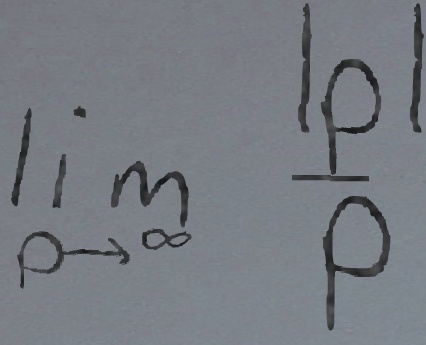 lim p→∞ |p|/p